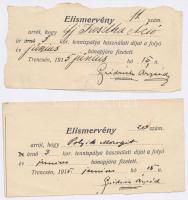 Elismervény
16 szám.
arról, hogy
úr árnő 3 kor. tennispálya használati díjat a folyó
év junius hónapjára fizetett
Trencsén, 1915 junius hó 15 n.
Fridrich Árpád
Elismervény
szám.
arról, hogy Polyik Margit
úr árnő 3 kor. tennispálya használati díjat a folyó
év junius hónapjára fizetett.
Trencsén, 1915 junius hó 15 n.
Fridrich Árpád